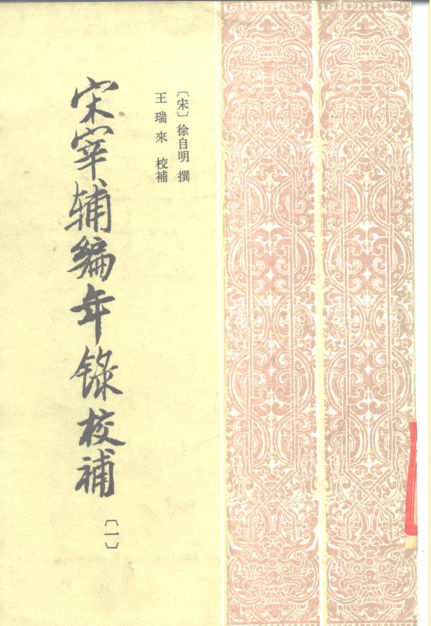 〔宋〕徐自明 撰
王瑞來 校補
宋宰辅编年錄校補
〔一〕